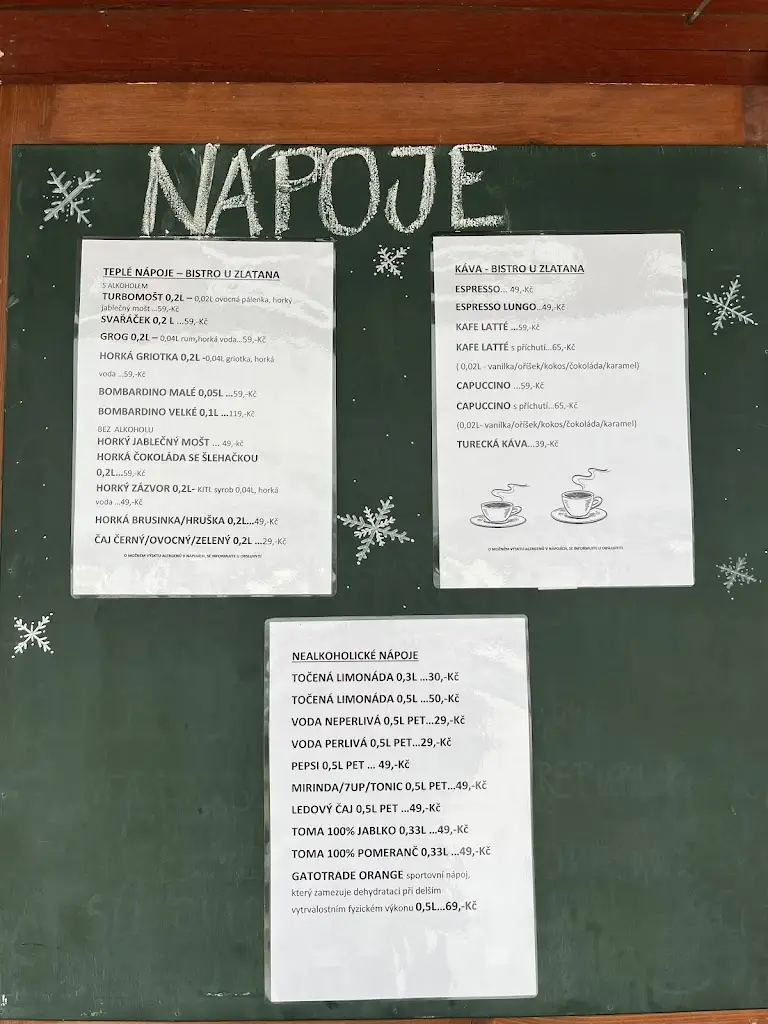 NÁPOJE
TEPLÉ NÁPOJE – BISTRO U ZLATANA
S ALKOHOLEM
TURBOMOŠT 0,2L – 0,02L ovocná pálenka, horký
jablečný mošt ...59,-Kč
SVAŘÁČEK 0,2 L ...59,-Kč
GROG 0,2L – 0,04L rum,horká voda...59,-Kč
HORKÁ GRIOTKA 0,2L -0,04L griotka, horká
voda ...59,-Kč
BOMBARDINO MALÉ 0,05L ...59,-Kč
BOMBARDINO VELKÉ 0,1L ...119,-Kč
BEZ ALKOHOLU
HORKÝ JABLEČNÝ MOŠT ... 49,-kč
HORKÁ ČOKOLÁDA SE ŠLEHAČKOU
0,2L...59,-Kč
HORKÝ ZÁZVOR 0,2L- KITL syrob 0,04L, horká
voda ...49,-Kč
HORKÁ BRUSINKA/HRUŠKA 0,2L...49,-Kč
ČAJ ČERNÝ/OVOCNÝ/ZELENÝ 0,2L ...29,-Kč
O MOŽNÉM VÝSKYTU ALERGENŮ V NÁPOJÍCH, SE INFORMUJTE U OBSLUHY!!!
KÁVA - BISTRO U ZLATANA
ESPRESSO... 49,-Kč
ESPRESSO LUNGO...49,-Kč
KAFE LATTÉ ...59,-Kč
KAFE LATTÉ s příchutí...65,-Kč
( 0,02L - vanilka/oříšek/kokos/čokoláda/karamel)
CAPUCCINO ...59,-Kč
CAPUCCINO s příchutí...65,-Kč
(0,02L- vanilka/oříšek/kokos/čokoláda/karamel)
TURECKÁ KÁVA...39,-Kč
O MOŽNÉM VÝSKYTU ALERGENŮ V NÁPOJÍCH, SE INFORMUJTE U OBSLUHY!!!
NEALKOHOLICKÉ NÁPOJE
TOČENÁ LIMONÁDA 0,3L ...30,-Kč
TOČENÁ LIMONÁDA 0,5L ...50,-Kč
VODA NEPERLIVÁ 0,5L PET...29,-Kč
VODA PERLIVÁ 0,5L PET...29,-Kč
PEPSI 0,5L PET ... 49,-Kč
MIRINDA/7UP/TONIC 0,5L PET...49,-Kč
LEDOVÝ ČAJ 0,5L PET ...49,-Kč
TOMA 100% JABLKO 0,33L ...49,-Kč
TOMA 100% POMERANČ 0,33L ...49,-Kč
GATOTRADE ORANGE sportovní nápoj,
který zamezuje dehydrataci při delším
vytrvalostním fyzickém výkonu 0,5L...69,-Kč